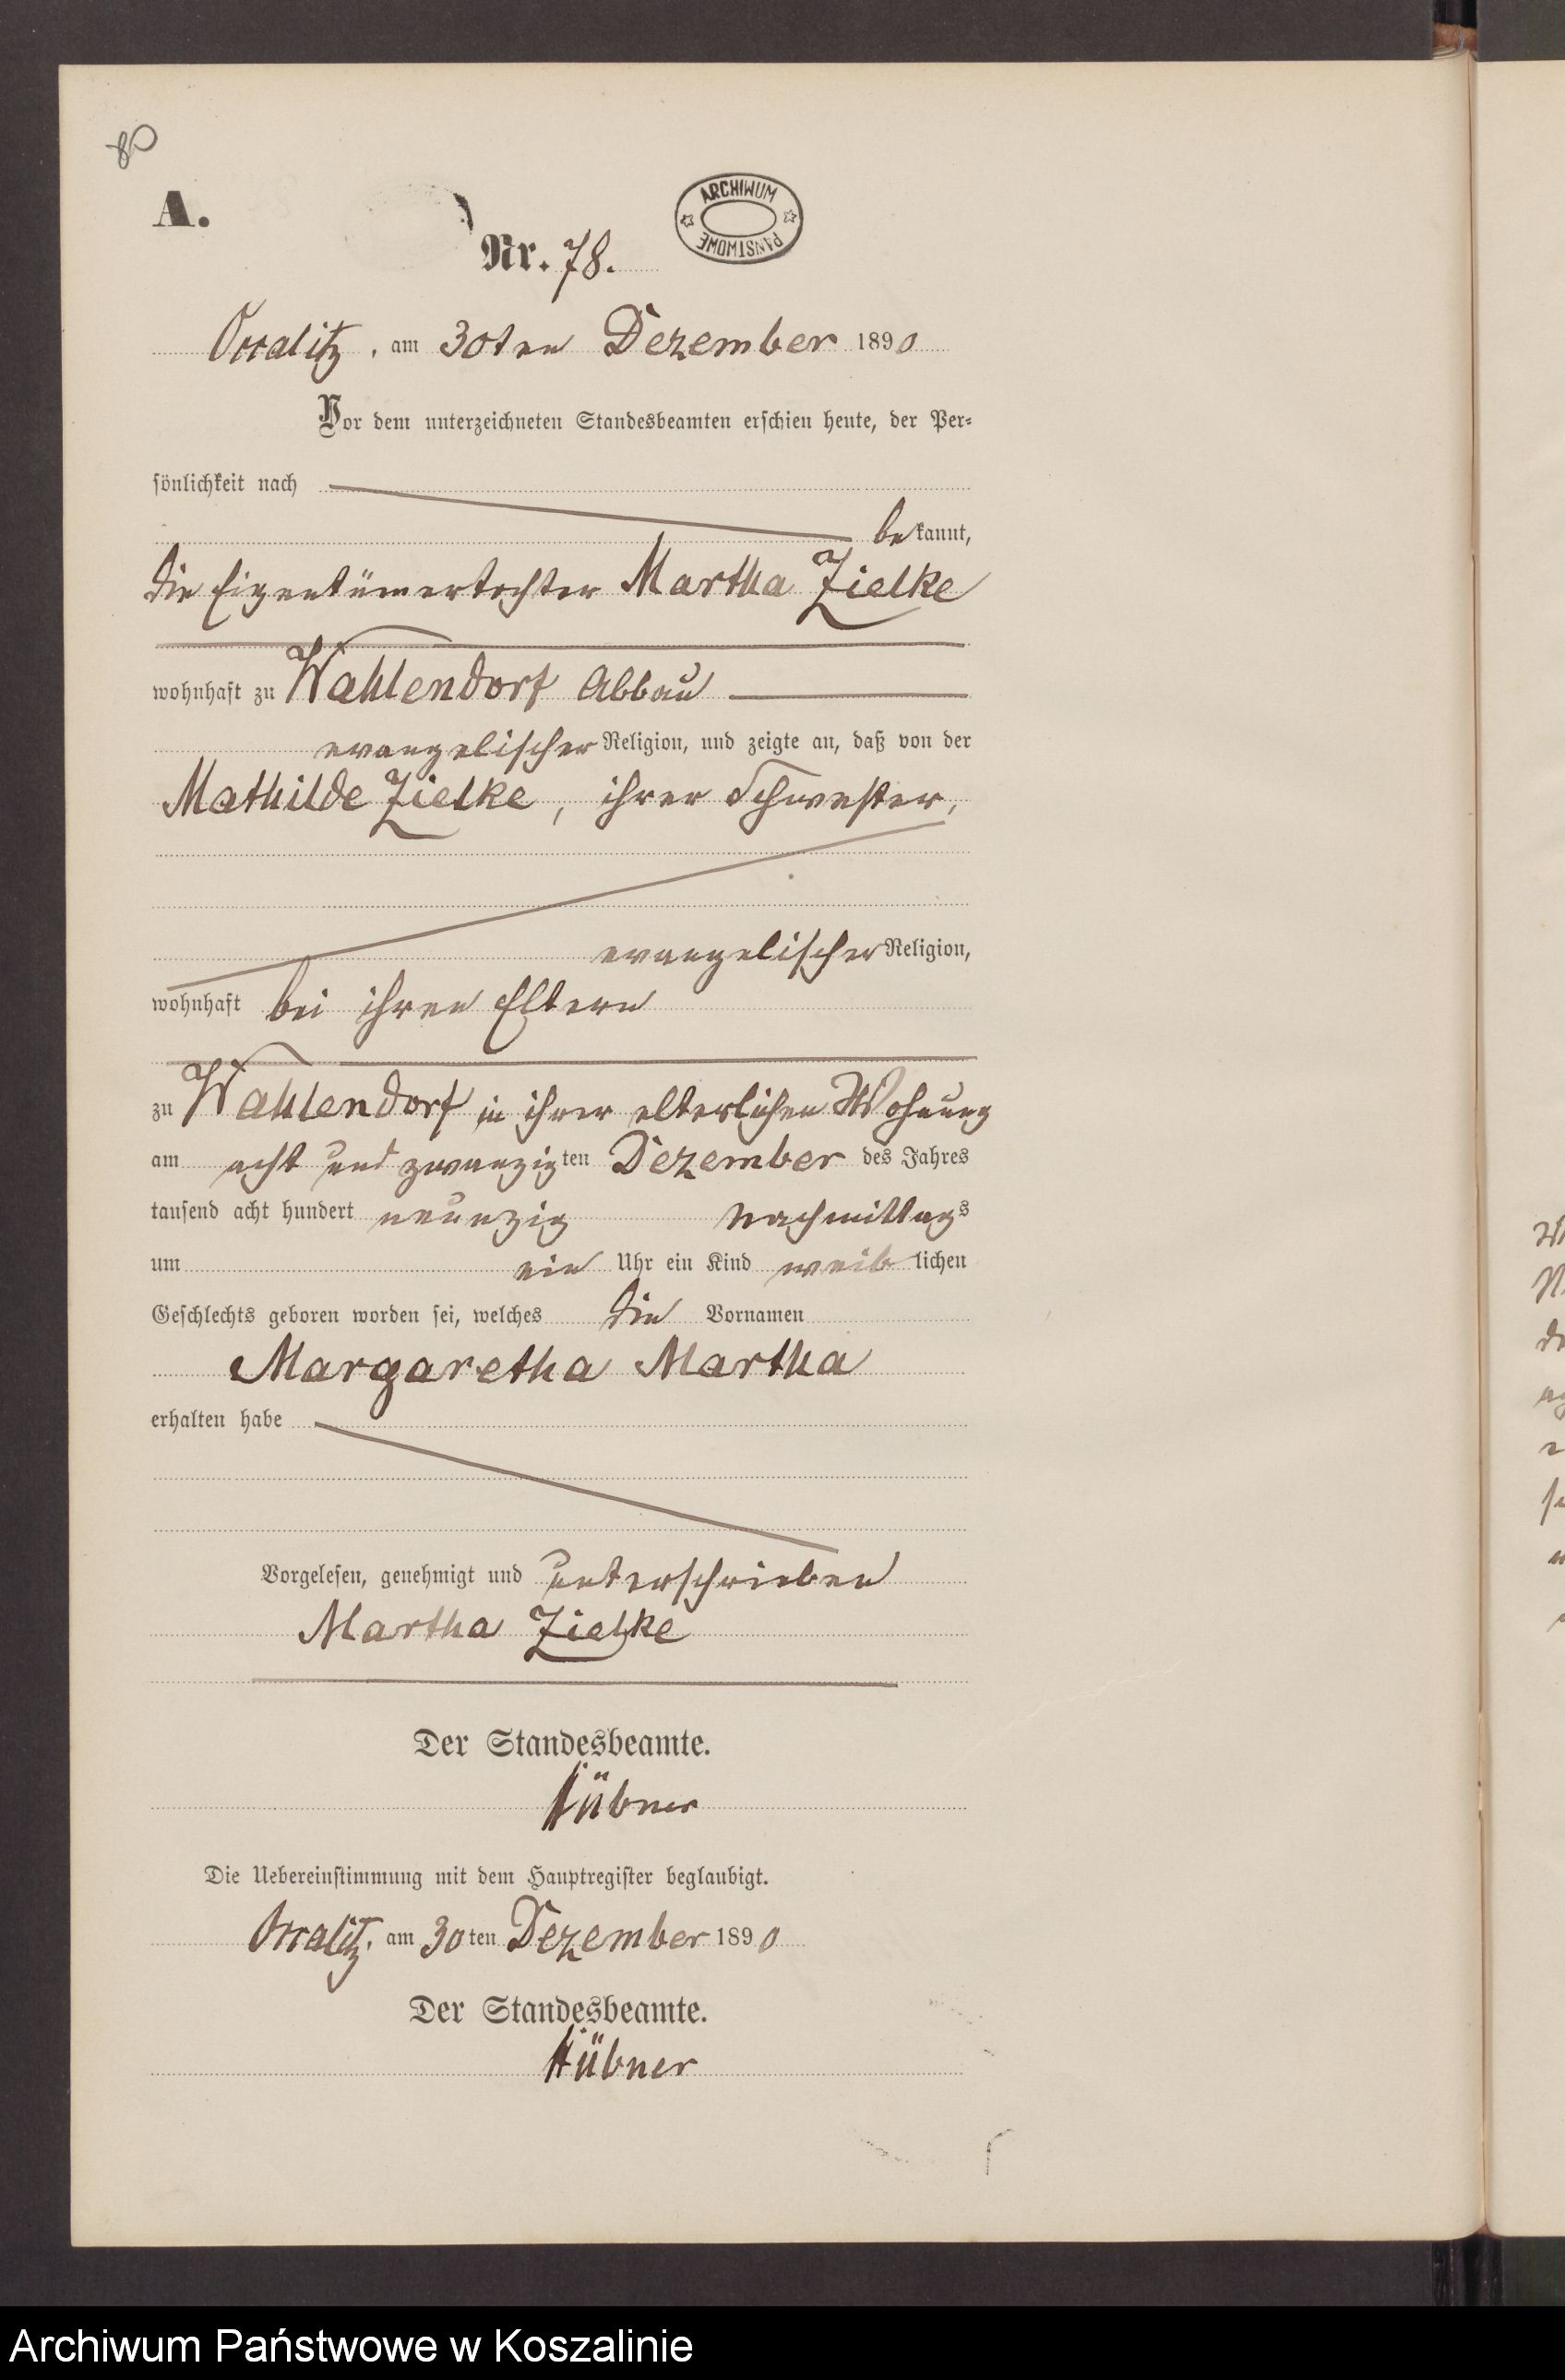 80
A.
ARCHIWUM PAŃSTWOWE
Nr. 78.
am 30ten Dezember 1890
Vor dem unterzeichneten Standesbeamten erschien heute, der Per-
sönlichkeit nach
bekannt,
die Eigentümertochter Martha Zielke
wohnhaft zu Wahlendorf Abbau
evangelischer Religion, und zeigte an, daß von der
Mathilde Zielke, ihrer Schwester,
evangelischer Religion,
wohnhaft bei ihren Eltern
zu Wahlendorf in ihrer elterlichen Wohnung
am acht und zwanzigten Dezember des Jahres
tausend acht hundert neunzig Nachmittags
um ein Uhr ein Kind weiblichen
Geschlechts geboren worden sei, welches die Vornamen
Margaretha Martha
erhalten habe
Vorgelesen, genehmigt und unterschrieben
Martha Zielke
Der Standesbeamte.
Hübner
Die Uebereinstimmung mit dem Hauptregister beglaubigt.
am 30ten Dezember 1890
Der Standesbeamte.
Hübner
Archiwum Państwowe w Koszalinie